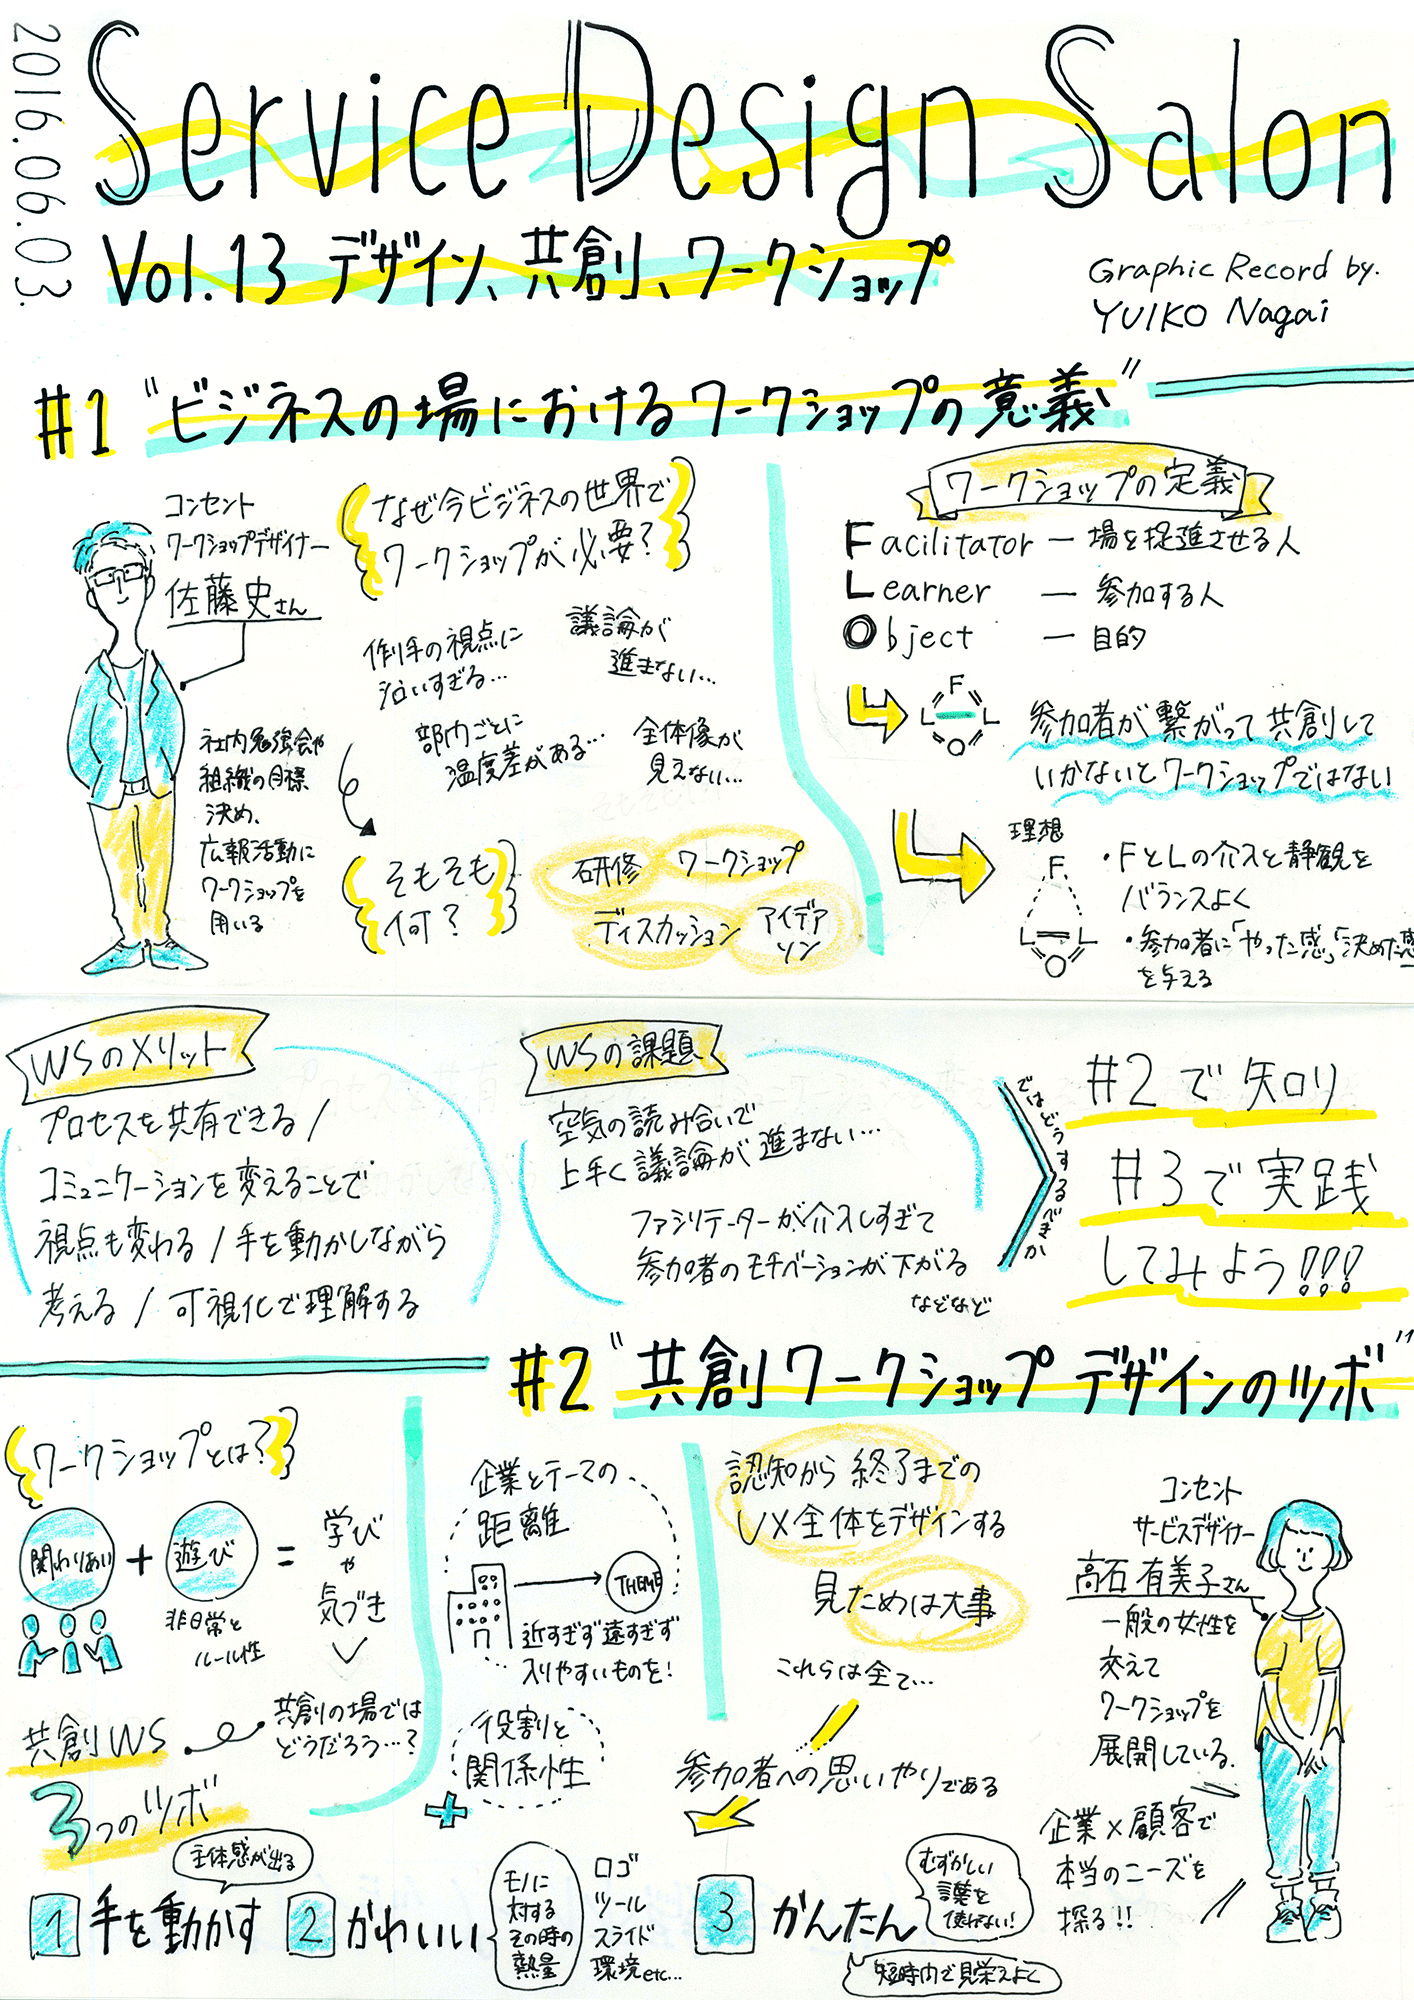 2016.06.03.
Service Design Salon
Vol.13 デザイン、共創、ワークショップ
Graphic Record by.
YUIKO Nagai
#1 "ビジネスの場におけるワークショップの意義"
コンセント
ワークショップデザイナー
佐藤史さん
社内勉強会や
組織の目標
決め、
広報活動に
ワークショップを
用いる
なぜ今ビジネスの世界で
ワークショップが必要?
作り手の視点に
沿いすぎる...
議論が
進まない...
部内ごとに
温度差がある...
全体像が
見えない...
そもそも
何?
研修
ワークショップ
ディスカッション
アイデア
ソン
ワークショップの定義
Facilitator — 場を促進させる人
Learner — 参加する人
Object — 目的
F
L L
O
参加者が繋がって共創して
いかないとワークショップではない!
理想
F
L L
O
・FとLの介入と静観を
バランスよく
・参加者に「やった感」「決めた感
を与える
WSのメリット
プロセスを共有できる /
コミュニケーションを変えることで
視点も変わる / 手を動かしながら
考える / 可視化で理解する
WSの課題
空気の読み合いで
上手く議論が進まない...
ファシリテーターが介入しすぎて
参加者のモチベーションが下がる
などなど
ではどうするべきか
#2で知り
#3で実践
してみよう!!!
#2 "共創ワークショップデザインのツボ"
ワークショップとは?
関わりあい + 遊び = 学び
や
気づき
非日常と
ルール性
共創WS
共創の場では
どうだろう...?
3つのツボ
企業とテーマの
距離
THEME
近すぎず遠すぎず
入りやすいものを!
役割と
関係性
認知から終了までの
UX全体をデザインする
見ためは大事
これらは全て...
参加者への思いやりである
コンセント
サービスデザイナー
高石有美子さん
一般の女性を
交えて
ワークショップを
展開している.
企業×顧客で
本当のニーズを
探る!!
主体感が出る
1 手を動かす
2 かわいい
モノに
対する
その時の
熱量
ロゴ
ツール
スライド
環境etc...
3 かんたん
むずかしい
言葉を
使わない!
短時間で見栄えよく